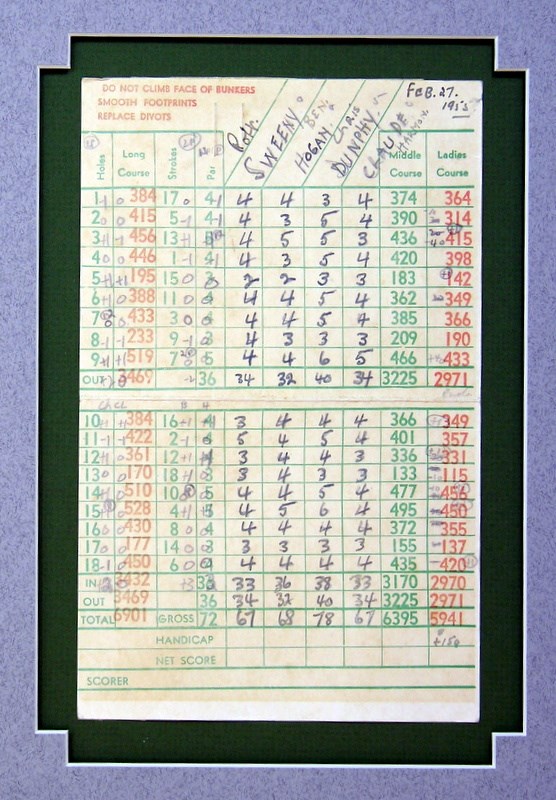 DO NOT CLIMB FACE OF BUNKERS
SMOOTH FOOTPRINTS
REPLACE DIVOTS
FEB. 27.
SWEENY BEN. HOGAN. CHRIS DUNPHY CLAUDE HARMON.
Holes Long Course Strokes Par Middle Course Ladies Course
1 384 17 4 4 4 3 4 374 364
2 415 5 4 4 3 5 4 390 314
3 456 13 4 5 5 3 436 415
4 446 1 4 4 3 5 4 420 398
5 195 15 3 2 2 3 3 183 142
6 388 11 4 4 5 4 362 349
7 433 3 4 4 5 4 385 366
8 233 9 4 3 3 3 209 190
9 519 7 5 4 4 6 5 466 433
OUT 3469 36 34 32 40 34 3225 2971
10 384 16 4 3 4 4 4 366 349
11 422 2 4 5 4 5 4 401 357
12 361 12 4 3 4 4 3 336 331
13 170 18 3 4 3 3 133 115
14 510 10 5 4 4 5 4 477 456
15 528 4 5 4 5 6 4 495 450
16 430 8 4 4 4 4 4 372 355
17 177 14 3 3 3 3 3 155 137
18 450 6 4 4 4 4 435 420
IN 3432 33 36 38 33 3170 2970
OUT 3469 36 34 32 40 34 3225 2971
TOTAL 6901 GROSS 72 67 68 78 67 6395 5941
HANDICAP
NET SCORE
SCORER